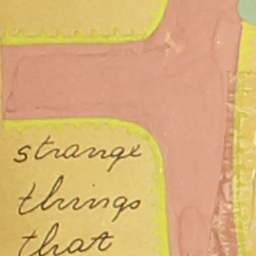 strange
things
that